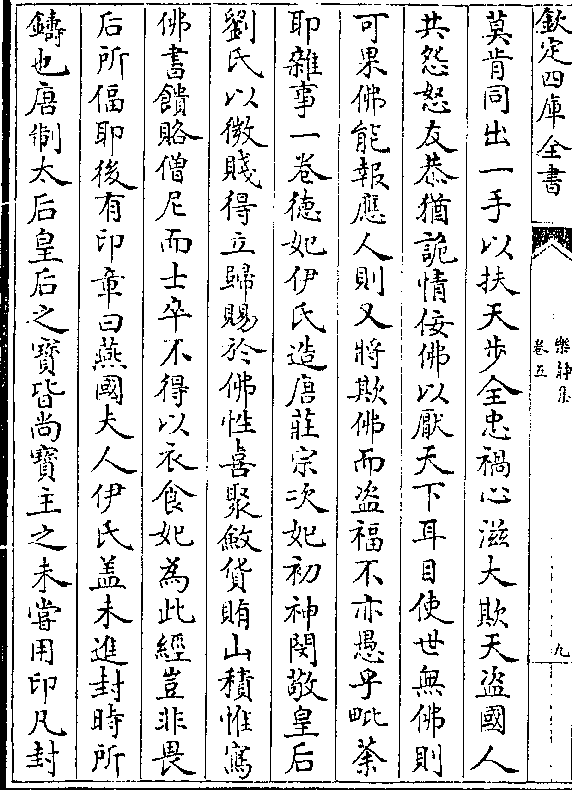 欽定四庫全書
樂靜集
卷五
九
莫肯同出一手以扶天步全忠禍心滋大欺天盜國人
共怨怒友恭猶詭情佞佛以厭天下耳目使世無佛則
可果佛能報應人則又將欺佛而盜福不亦愚乎毗荼
耶雜事一卷德妃伊氏造唐莊宗次妃初神閔敬皇后
劉氏以微賤得立歸賜於佛性喜聚斂貨賄山積惟寫
佛書饋賂僧尼而士卒不得以衣食妃為此經豈非畏
后所偪耶後有印章曰燕國夫人伊氏盖未進封時所
鑄也唐制太后皇后之寶皆尚寶主之未嘗用印凡封